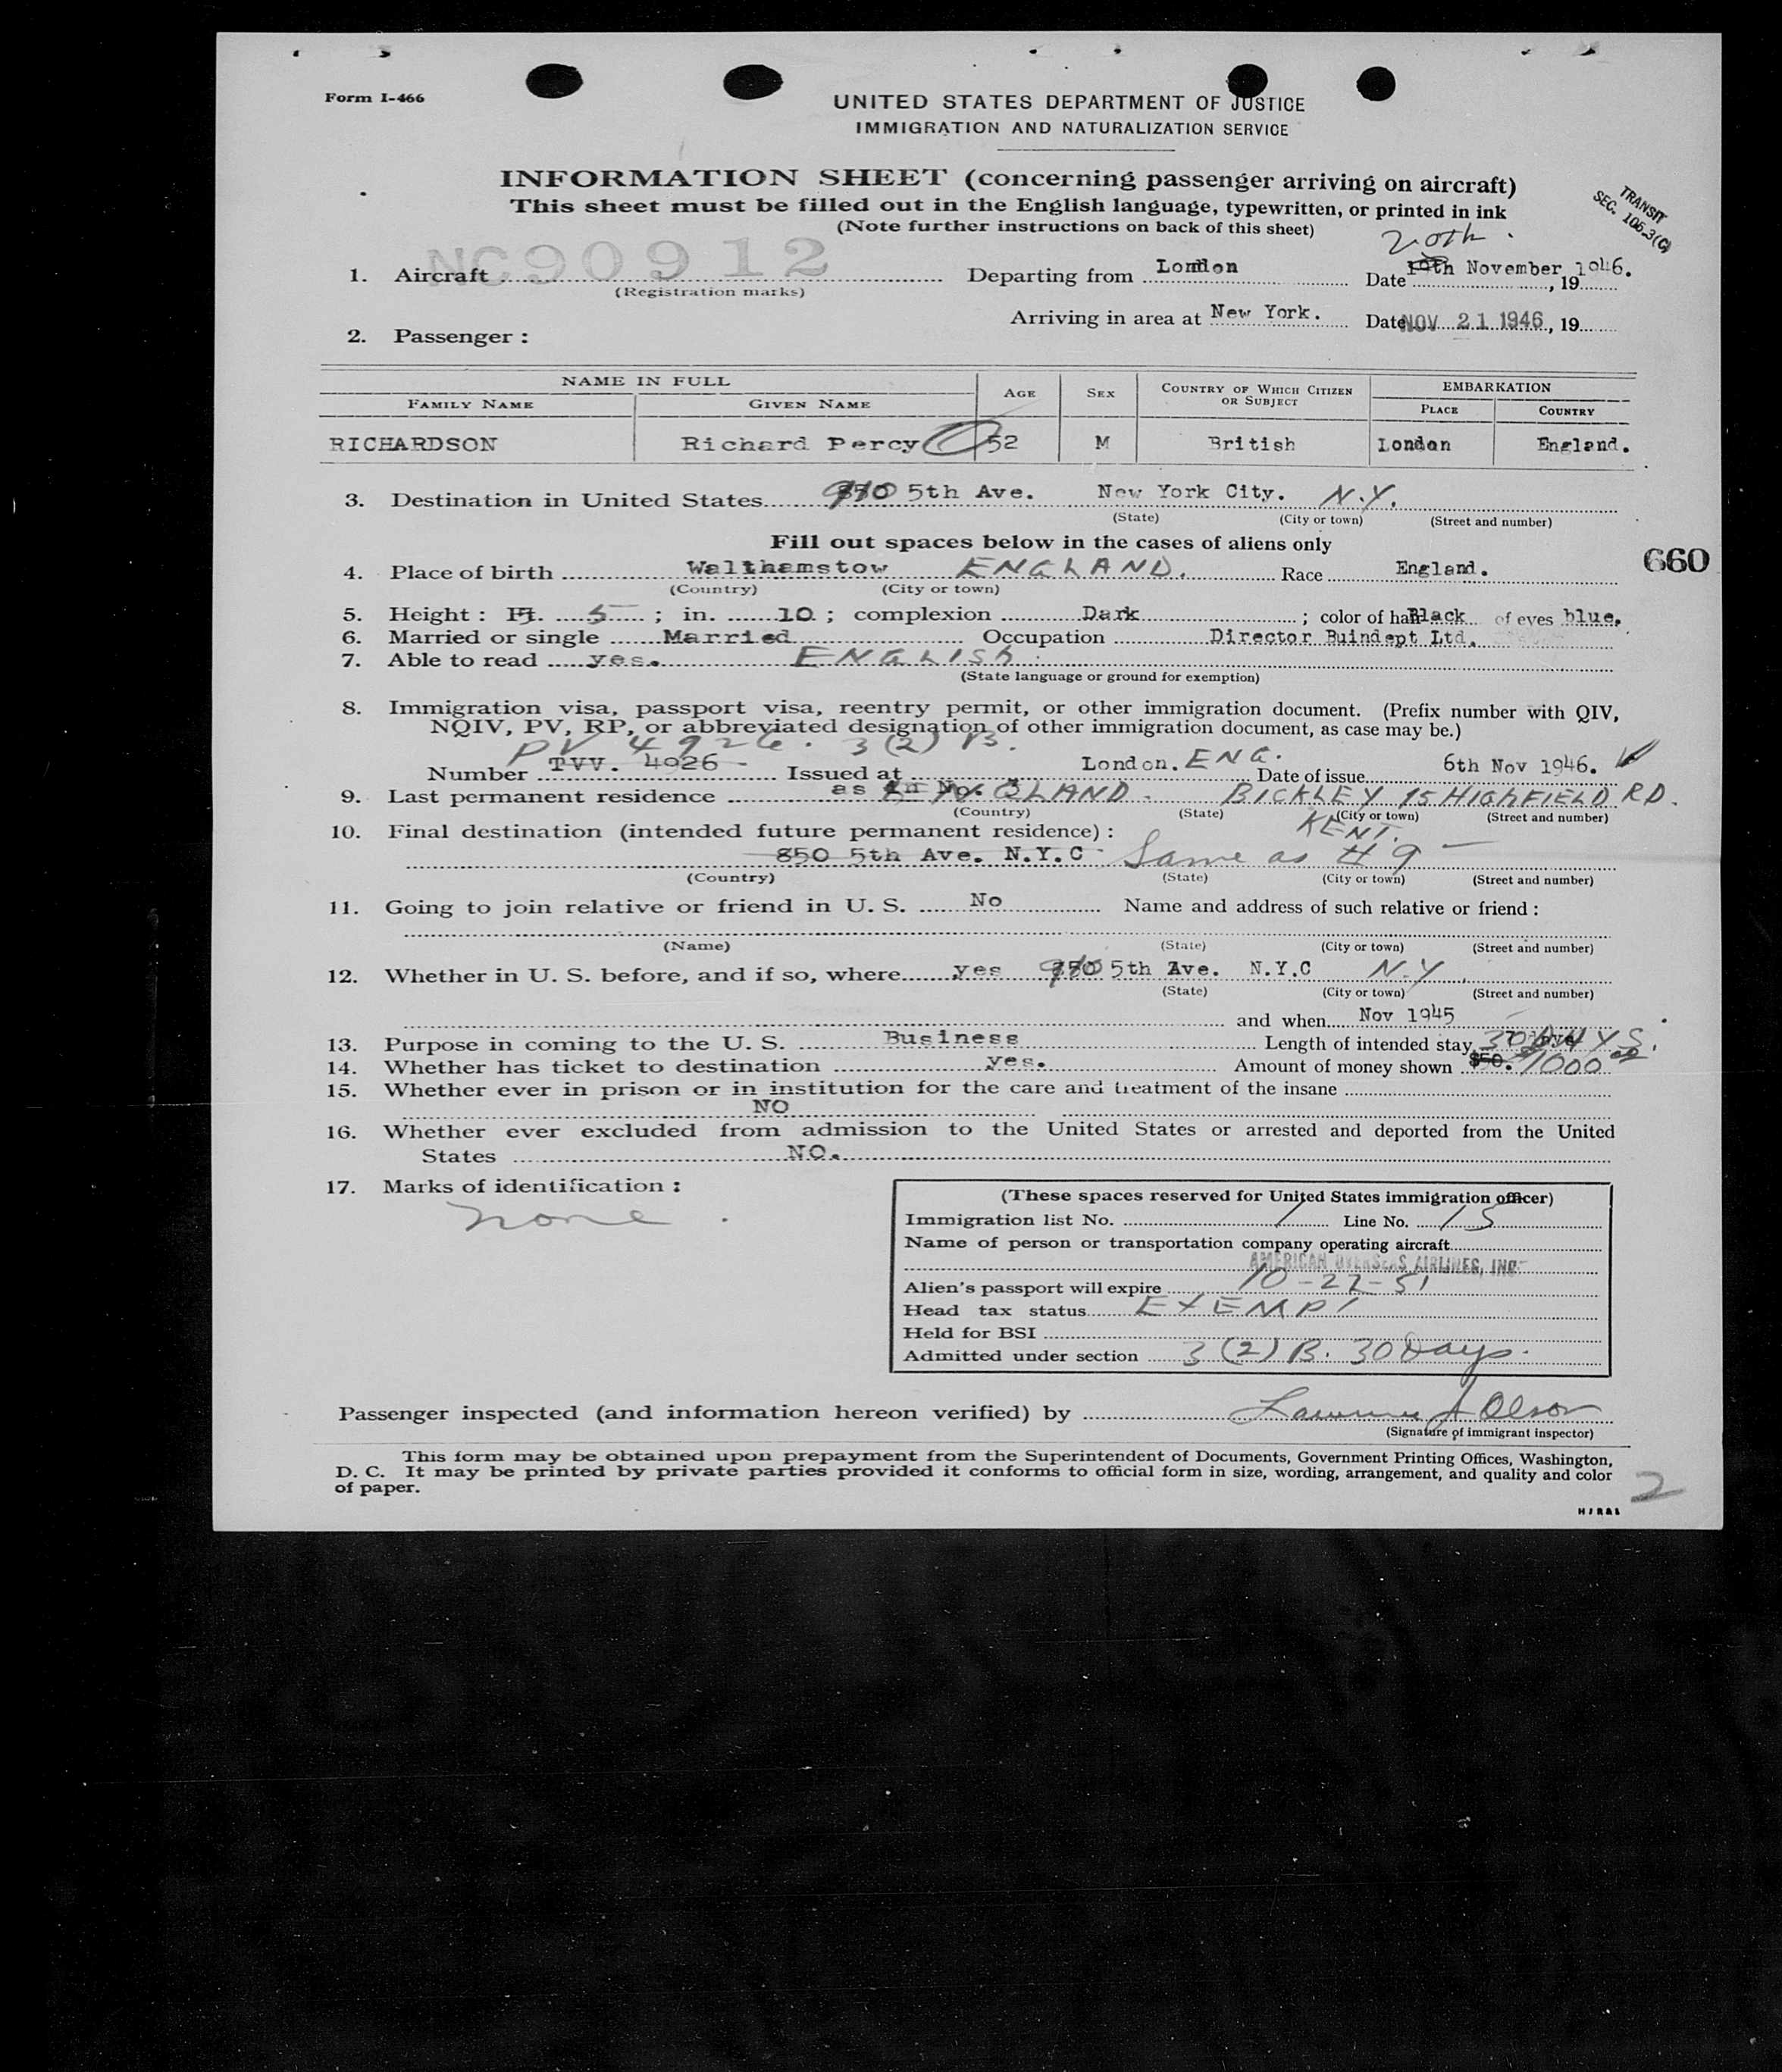 Form I-466
UNITED STATES DEPARTMENT OF JUSTICE
IMMIGRATION AND NATURALIZATION SERVICE
INFORMATION SHEET (concerning passenger arriving on aircraft)
This sheet must be filled out in the English language, typewritten, or printed in ink
(Note further instructions on back of this sheet)
TRANSIT
SEC. 105.3(C)
20th.
1. Aircraft NC90912 Departing from London Date November, 1946. , 19
(Registration marks)
Arriving in area at New York. Date NOV 21 1946, 19
2. Passenger :
NAME IN FULL AGE SEX COUNTRY OF WHICH CITIZEN OR SUBJECT EMBARKATION
FAMILY NAME GIVEN NAME PLACE COUNTRY
RICHARDSON Richard Percy 52 M British London England.
3. Destination in United States 5th Ave. New York City. N.Y.
(State) (City or town) (Street and number)
Fill out spaces below in the cases of aliens only
660
4. Place of birth Walthamstow ENGLAND. Race England.
(Country) (City or town)
5. Height : Ft. 5 ; in. 10 ; complexion Dark ; color of hair Black of eyes blue.
6. Married or single Married Occupation Director Ruindept Ltd.
7. Able to read yes. ENGLISH
(State language or ground for exemption)
8. Immigration visa, passport visa, reentry permit, or other immigration document. (Prefix number with QIV,
NQIV, PV, RP, or abbreviated designation of other immigration document, as case may be.)
PV 4926. 3(2) B.
Number TVV. 4926 Issued at London. ENG. Date of issue 6th Nov 1946.
9. Last permanent residence as in No. 3 ENGLAND. BICKLEY 15 HIGHFIELD RD.
(Country) (State) (City or town) (Street and number)
KENT.
10. Final destination (intended future permanent residence) :
850 5th Ave. N.Y.C Same as # 9
(Country) (State) (City or town) (Street and number)
11. Going to join relative or friend in U. S. No Name and address of such relative or friend :
(Name) (State) (City or town) (Street and number)
12. Whether in U. S. before, and if so, where yes 5th Ave. N.Y.C N.Y.
(State) (City or town) (Street and number)
and when Nov 1945
13. Purpose in coming to the U. S. Business Length of intended stay 30 DAYS.
14. Whether has ticket to destination yes. Amount of money shown $50. $1000.00
15. Whether ever in prison or in institution for the care and treatment of the insane
NO
16. Whether ever excluded from admission to the United States or arrested and deported from the United
States NO.
17. Marks of identification :
none
(These spaces reserved for United States immigration officer)
Immigration list No. 1 Line No. 15
Name of person or transportation company operating aircraft
AMERICAN OVERSEAS AIRLINES, INC.
Alien's passport will expire 10-22-51
Head tax status EXEMPT
Held for BSI
Admitted under section 3(2) B. 30 Days.
Passenger inspected (and information hereon verified) by Lawrence A Olson
(Signature of immigrant inspector)
This form may be obtained upon prepayment from the Superintendent of Documents, Government Printing Offices, Washington,
D. C. It may be printed by private parties provided it conforms to official form in size, wording, arrangement, and quality and color
of paper.
2